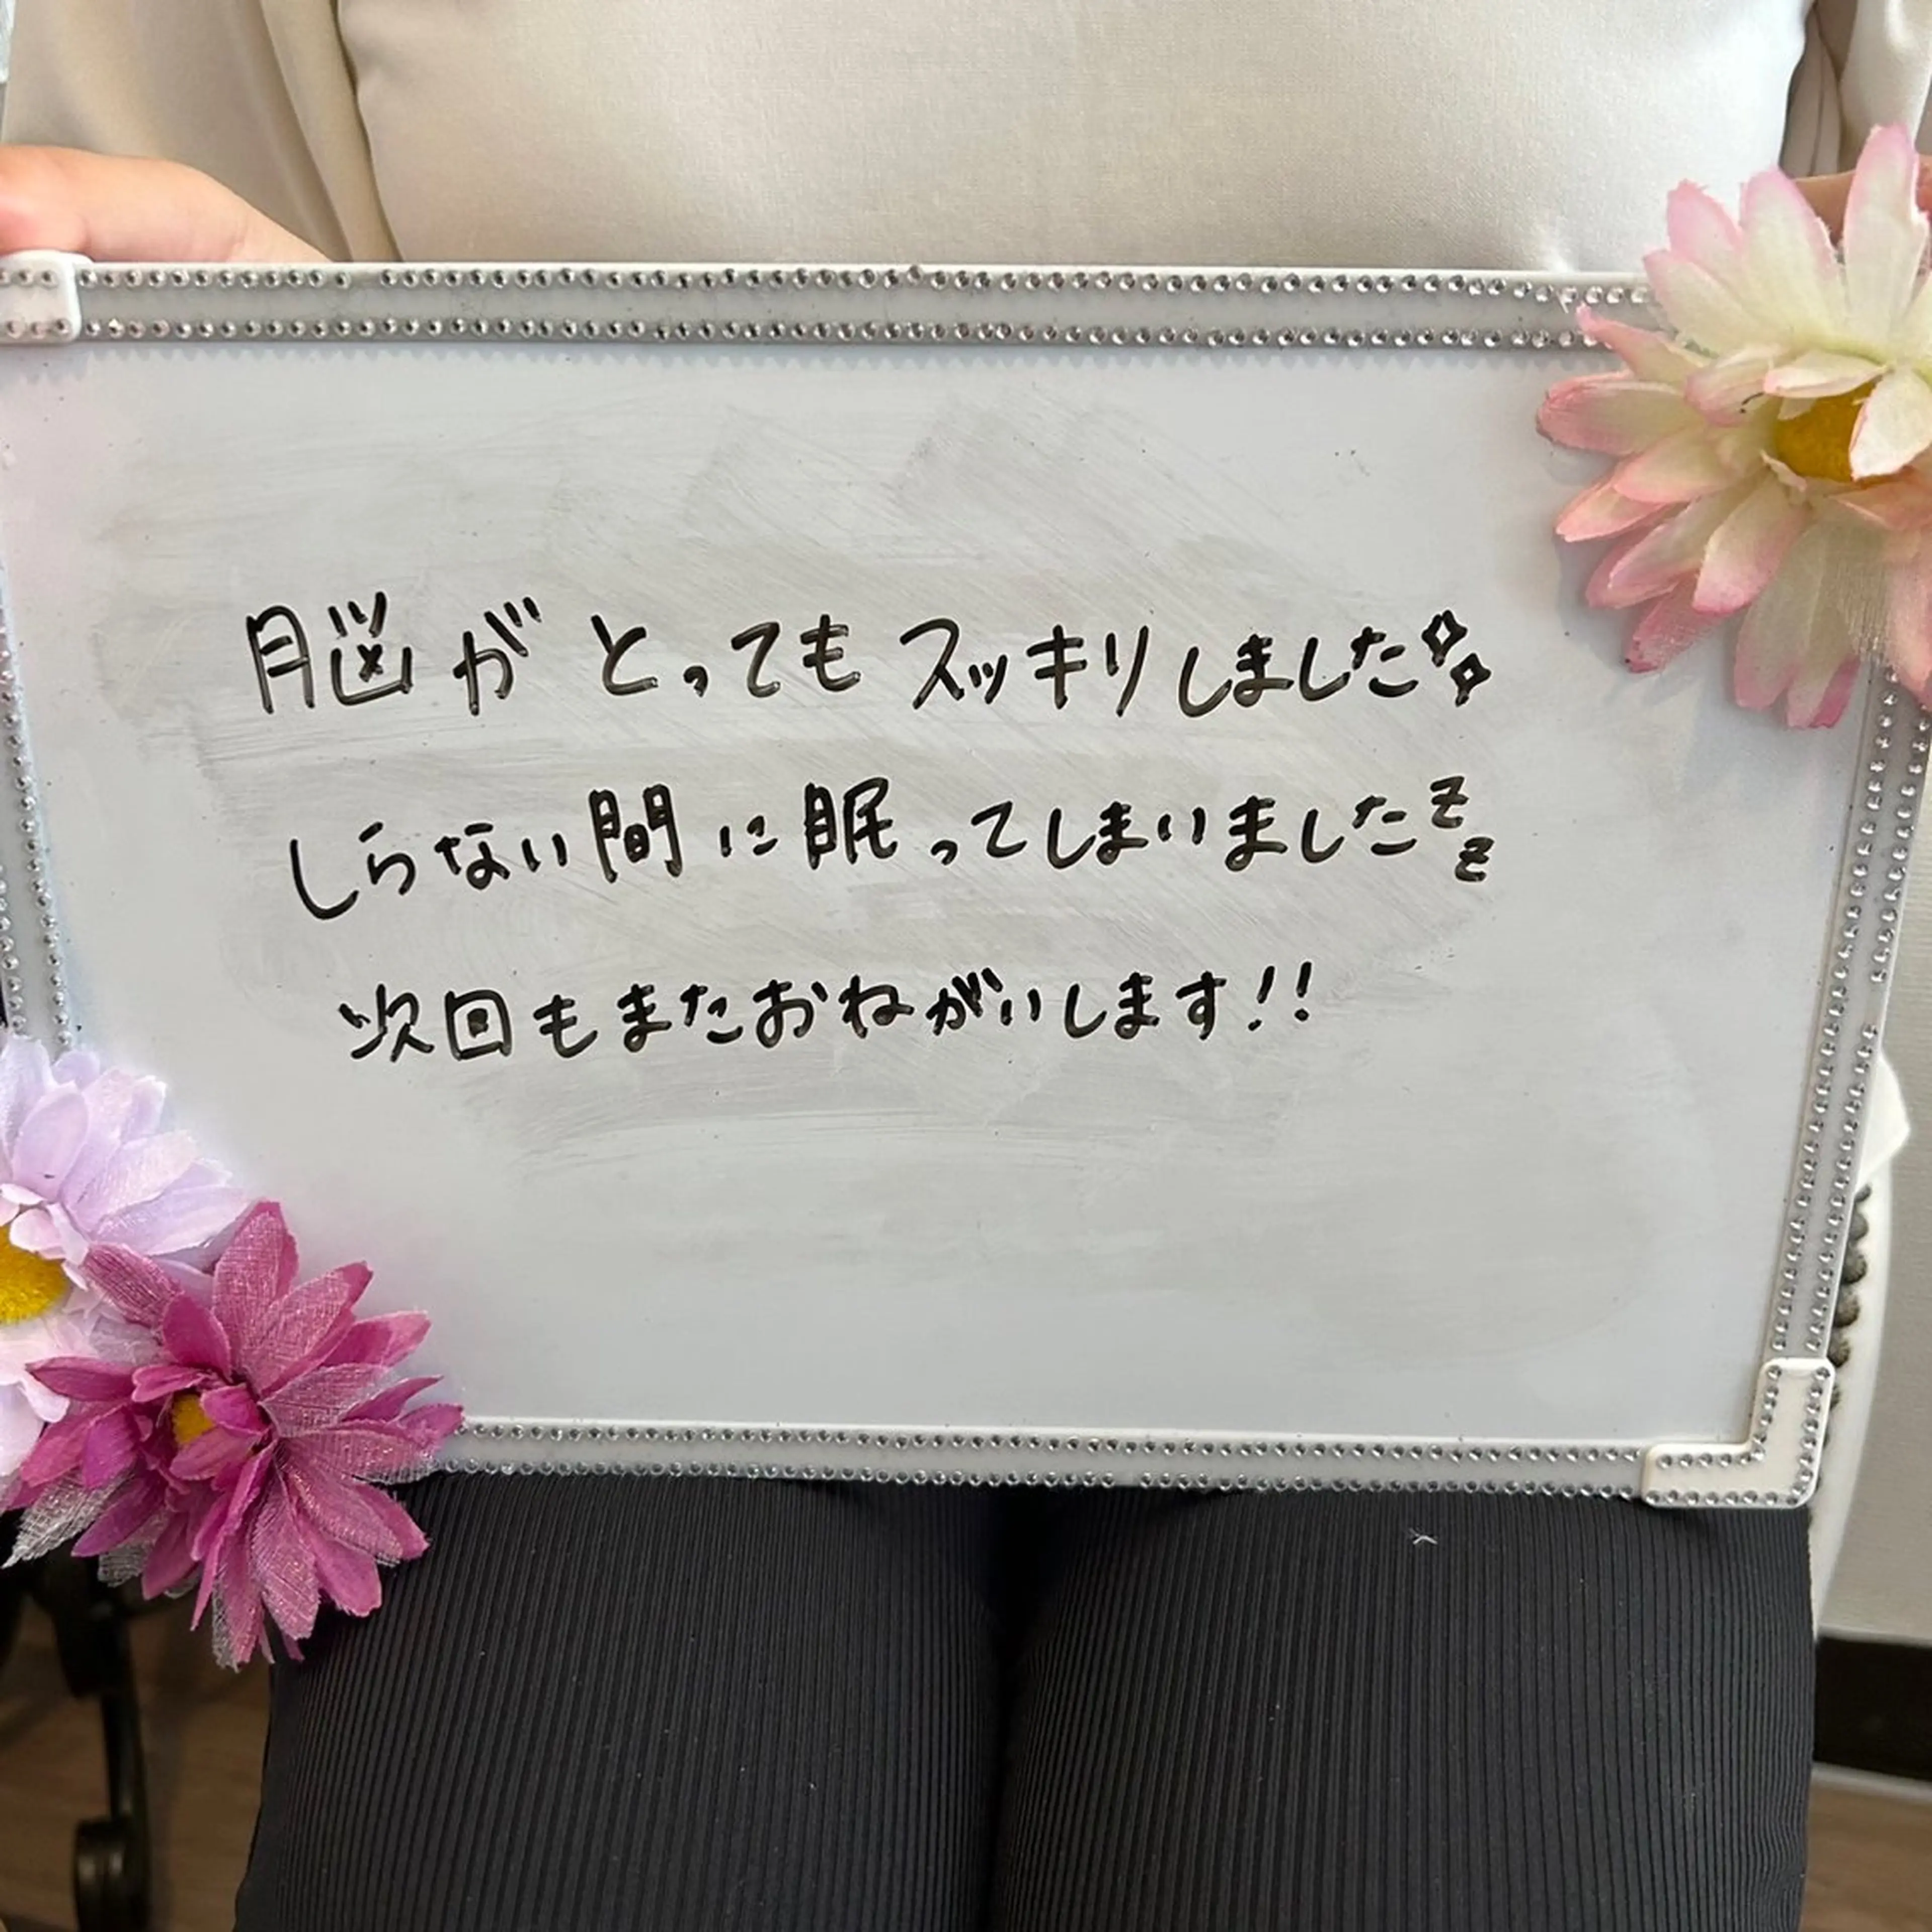 脳がとってもスッキリしました✨
しらない間に眠ってしまいましたzz
次回もまたおねがいします!!